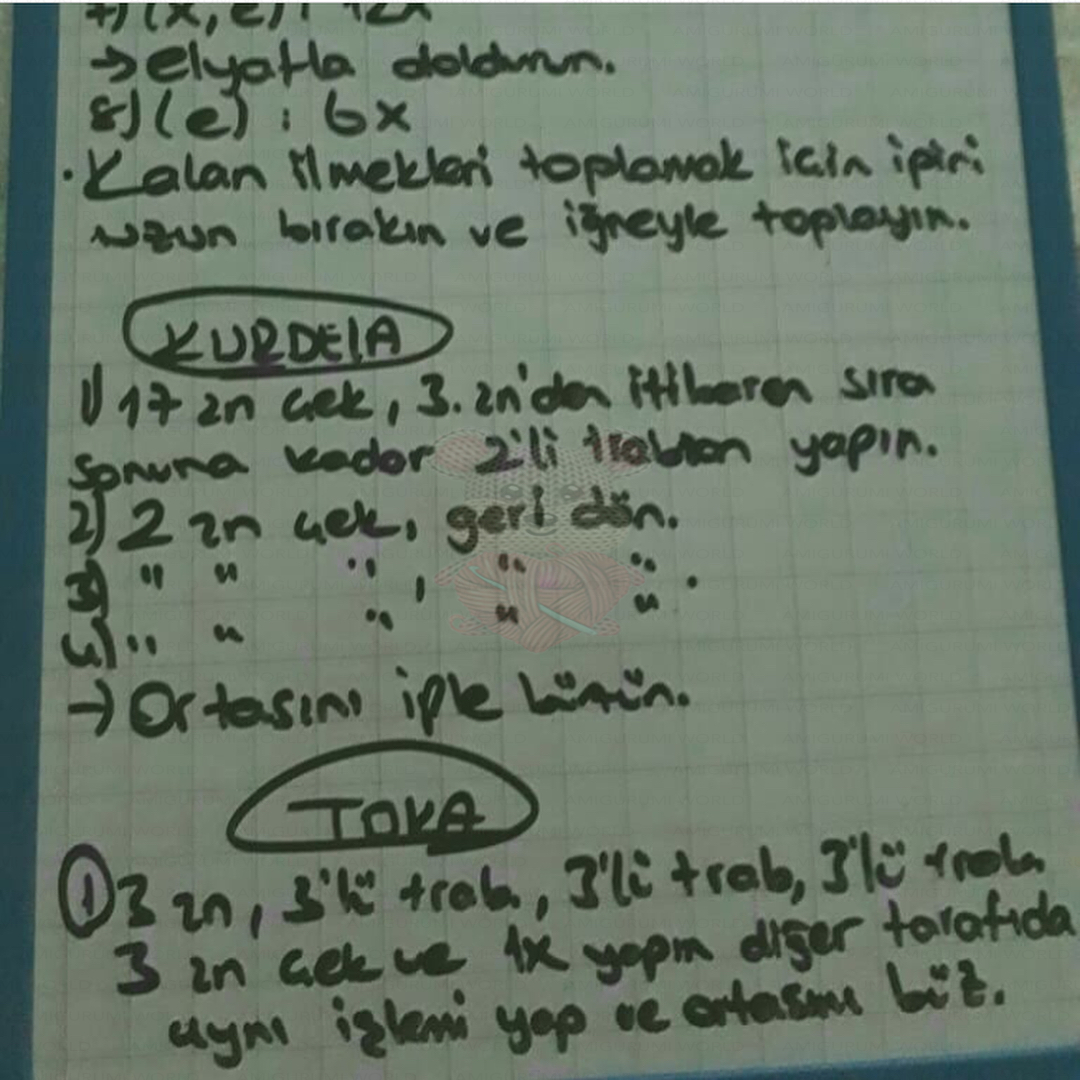 7) (x, e) : 12x
→ elyafla doldurun.
8) (e) : 6x
• Kalan ilmekleri toplamak için ipiri
uzun bırakın ve iğneyle toplayın.
KURDELA
1) 17 zn çek, 3. zn'den itibaren sıra
sonuna kadar 2'li trabzan yapın.
2) 2 zn çek, geri dön.
3) " " " , " " .
4) " " " " "
→ Ortasını iple büzün.
TOKA
① 3 zn, 3'lü trab, 3'lü trab, 3'lü trab
3 zn çek ve 1x yapın diğer tarafıda
aynı işlemi yap ve ortasını büz.